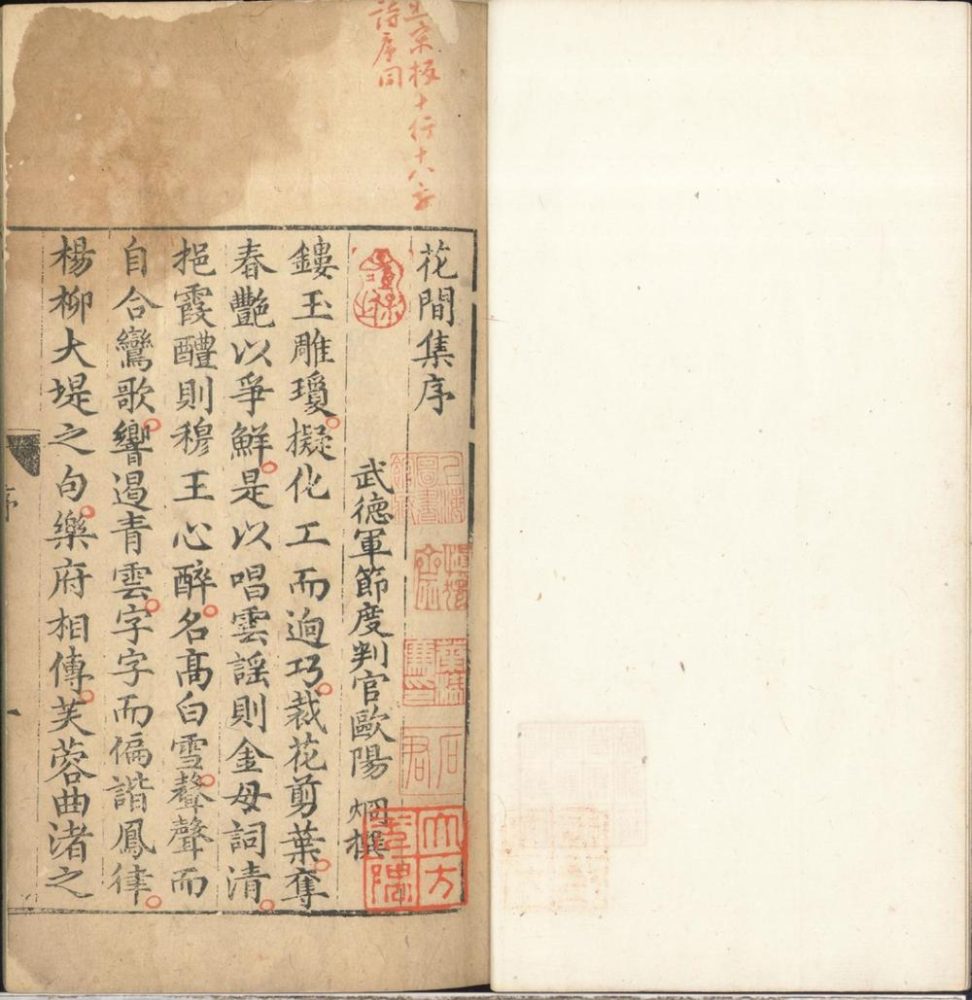 宋板十行十八字
詩序同
花間集序
武德軍節度判官歐陽 烱撰
鏤玉雕瓊擬化工而逈巧裁花剪葉奪
春艷以爭鮮是以唱雲謡則金母詞清
挹霞醴則穆王心醉名髙白雪聲聲而
自合鸞歌響遏青雲字字而偏諧鳳律
楊柳大堤之句樂府相傳芙蓉曲渚之
序
一
上海圖書館藏
大方